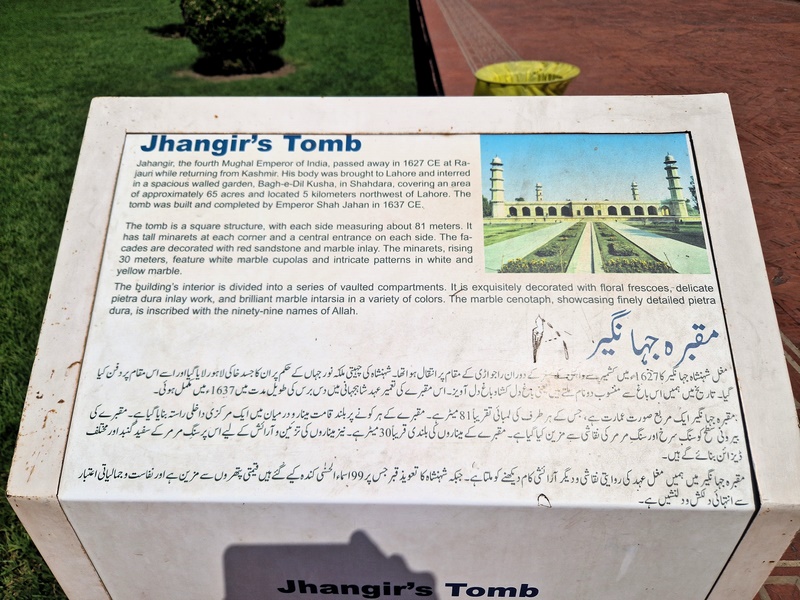 Jhangir's Tomb
Jahangir, the fourth Mughal Emperor of India, passed away in 1627 CE at Ra-
jauri while returning from Kashmir. His body was brought to Lahore and interred
in a spacious walled garden, Bagh-e-Dil Kusha, in Shahdara, covering an area
of approximately 65 acres and located 5 kilometers northwest of Lahore. The
tomb was built and completed by Emperor Shah Jahan in 1637 CE.
The tomb is a square structure, with each side measuring about 81 meters. It
has tall minarets at each corner and a central entrance on each side. The fa-
cades are decorated with red sandstone and marble inlay. The minarets, rising
30 meters, feature white marble cupolas and intricate patterns in white and
yellow marble.
The building's interior is divided into a series of vaulted compartments. It is exquisitely decorated with floral frescoes, delicate
pietra dura inlay work, and brilliant marble intarsia in a variety of colors. The marble cenotaph, showcasing finely detailed pietra
dura, is inscribed with the ninety-nine names of Allah.
مقبرہ جہانگیر
مغل شہنشاہ جہانگیر کا 1627ء میں کشمیر سے واپسی کے دوران راجوڑی کے مقام پر انتقال ہوا تھا۔ شہنشاہ کی چہیتی ملکہ نور جہاں کے حکم پر ان کا جسد خاکی لاہور لایا گیا اور اسے اس مقام پر دفن کیا
گیا۔ تاریخ میں ہمیں اس باغ سے منسوب دو نام ملتے ہیں یعنی باغ دل کشا و باغ دل آویز۔ اس مقبرے کی تعمیر عہد شاہجہانی میں دس برس کی طویل مدت میں 1637ء میں مکمل ہوئی۔
مقبرہ جہانگیر ایک مربع صورت عمارت ہے، جس کے ہر طرف کی لمبائی تقریباً 81 میٹر ہے۔ مقبرے کے ہر کونے پر بلند قامت مینار و درمیان میں ایک مرکزی داخلی راستہ بنایا گیا ہے۔ مقبرے کی
بیرونی سطح کو سنگ سرخ اور سنگ مرمر کی نقاشی سے مزین کیا گیا ہے۔ مقبرے کے میناروں کی بلندی قریباً 30 میٹر ہے۔ نیز میناروں کی تزئین و آرائش کے لیے اس پر سنگ مرمر کے سفید گنبد اور مختلف
ڈیزائن بنائے گئے ہیں۔
مقبرہ جہانگیر میں ہمیں مغل عہد کی روایتی نقاشی و دیگر آرائشی کام دیکھنے کو ملتا ہے۔ جبکہ شہنشاہ کا تعویذ قبر جس پر 99 اسماء الحسنٰی کندہ کیے گئے ہیں قیمتی پتھروں سے مزین ہے اور نفاست و جمالیاتی اعتبار
سے انتہائی دلکش و دلنشیں ہے۔
Jhangir's Tomb